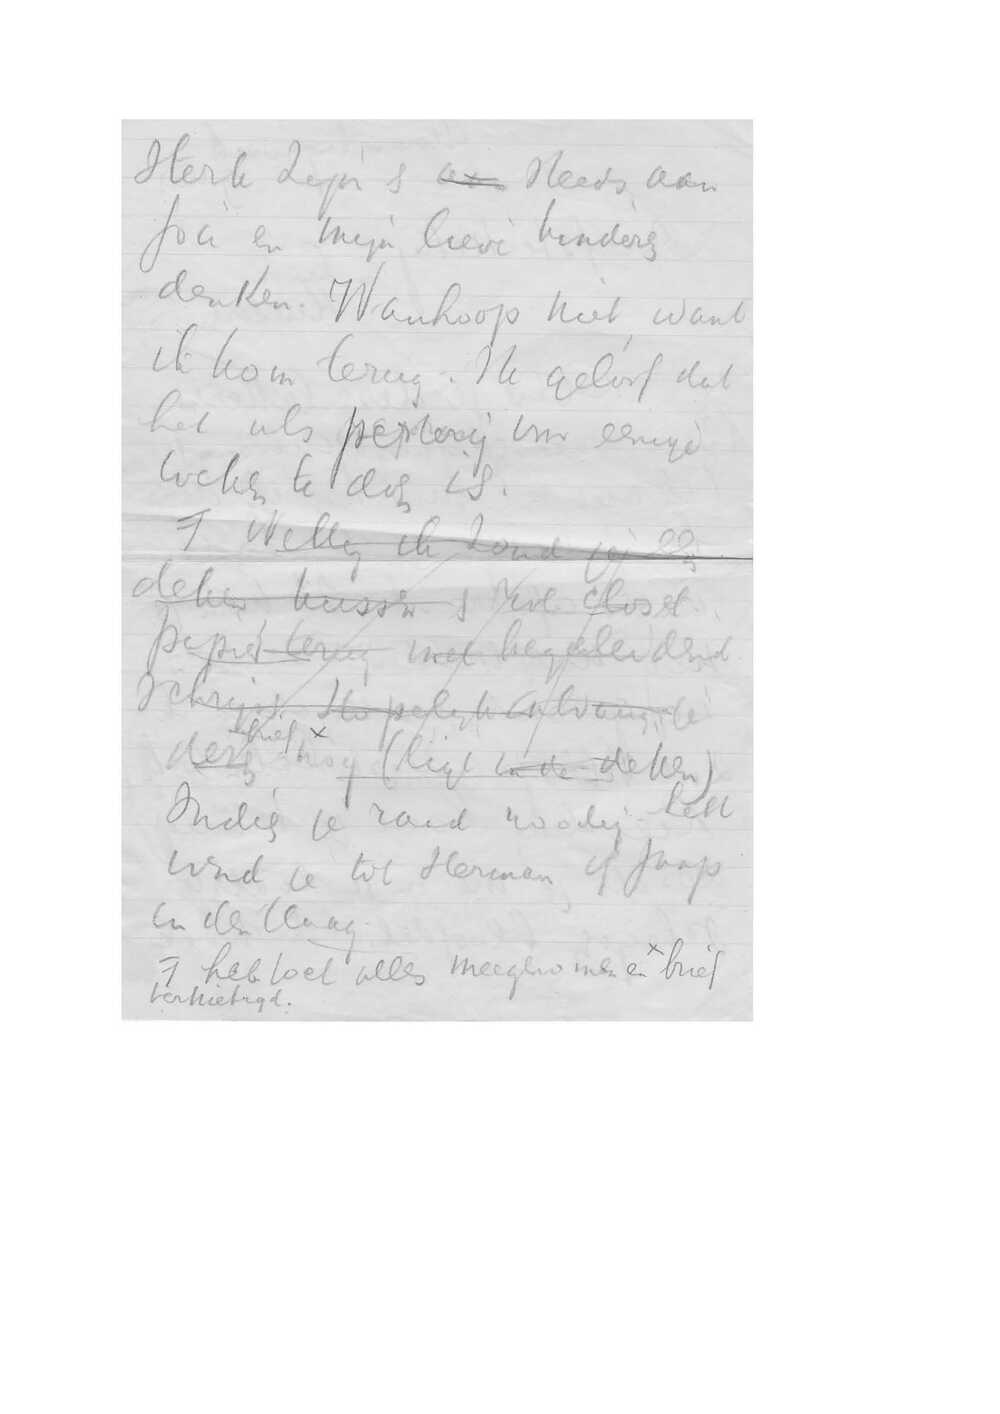 Sterk zijn & steeds aan
jou en mijn lieve kinders
denken. Wanhoop niet, want
ik kom terug. Ik geloof dat
het als pesterij om eenige
weken te doen is.
ik zond je
deken kussen & rol closet
papier terug met begeleidend
schrijven. Hopelijk ontvang je
brief x
(ligt in de deken)
Indien je raad noodig hebt
wend je tot Herman of Jaap
in den Haag.
heb toch alles meegenomen en x brief
vernietigd.